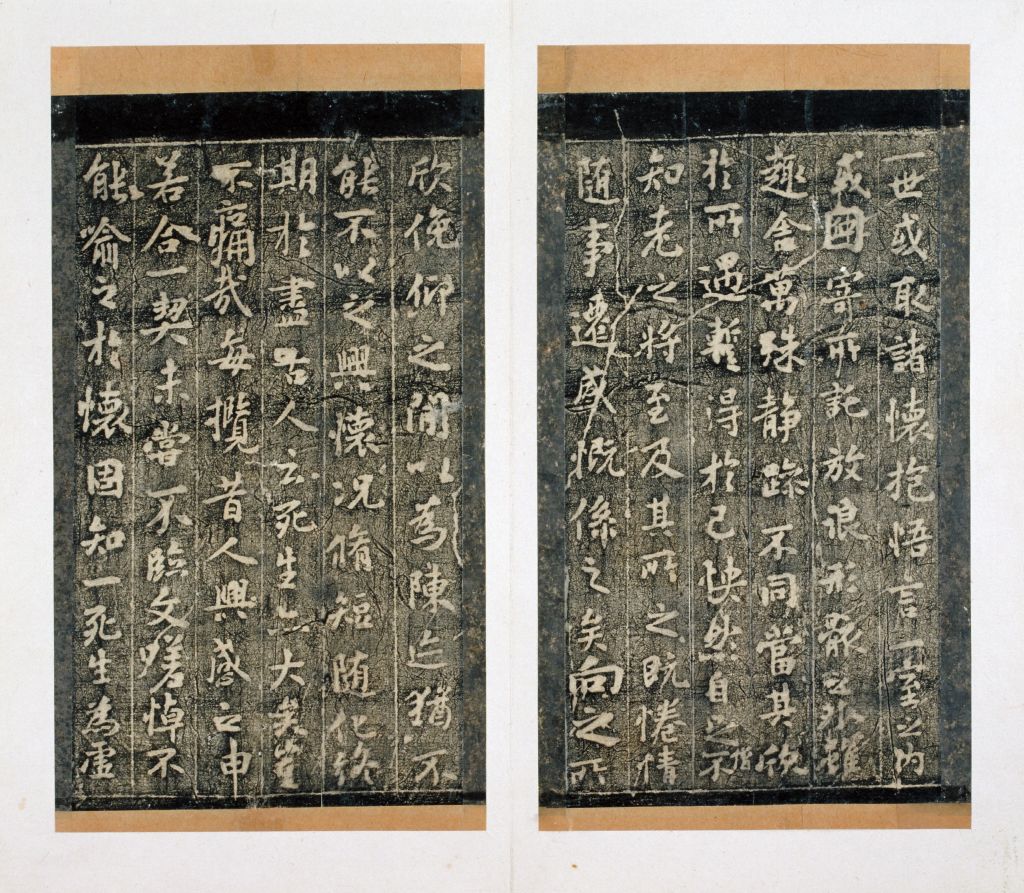 一世或取諸懷抱悟言一室之內
或因寄所託放浪形骸之外雖
趣舍萬殊靜躁不同當其欣
於所遇暫得於己怏然自足不
知老之將至及其所之既惓情
隨事遷感慨係之矣向之所
欣俛仰之閒以為陳迹猶不
能不以之興懷況脩短隨化終
期於盡古人云死生亦大矣豈
不痛哉每攬昔人興感之由
若合一契未嘗不臨文嗟悼不
能喻之於懷固知一死生為虛